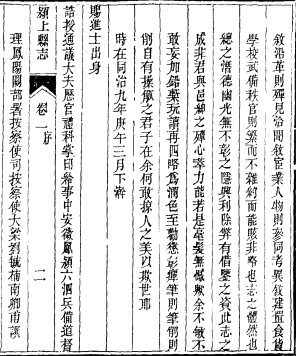 敘沿革則殫見洽聞敘官業人物則參同考異敘建置食貨
學校武備秩官則簡而不雜約而能賅非略也志之體然也
總之潛德幽光無不彰之隱興利除弊有借鑒之資此志之
成非君與邑紳之殫心萃力能若是毫髮無憾與余不敏不
敢妄加鉛槧玩讀再四略為潤色至勸懲彰癉筆則筆削則
削自有操觚之君子在余何敢掠人之美以欺世耶
時在同治九年庚午三月下澣
賜進士出身
誥授通議大夫歷官禮科掌印給事中安徽鳳潁六泗兵備道督
理鳳陽關部署按察使司按察使大梁劉毓楠南卿甫譔
潁上縣志
卷一序
二